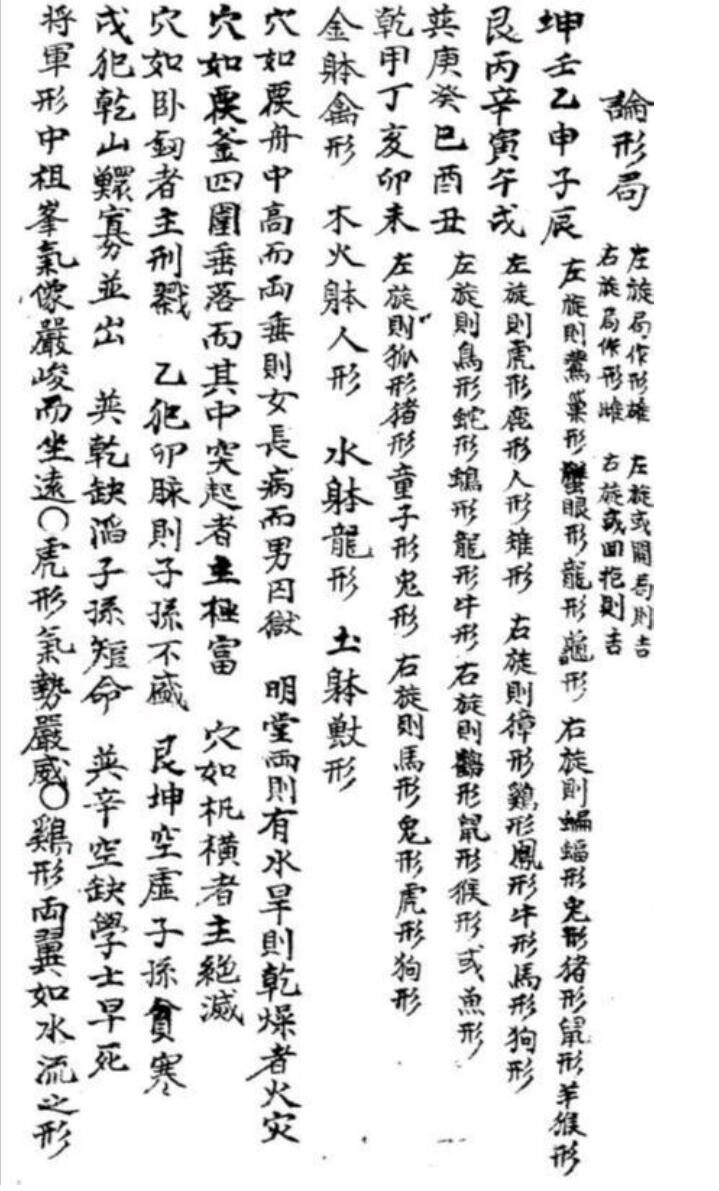 論形局 左旋局作形雄 右旋局作形雌 左旋或開局則吉 右旋或回抱則吉
坤壬乙申子辰 左旋則鶯巢形蟹眼形龍形龜形 右旋則蝙蝠形兔形猪形鼠形羊猴形
艮丙辛寅午戌 左旋則虎形鹿形人形雉形 右旋則獐形鷄形鳳形牛形馬形狗形
巽庚癸巳酉丑 左旋則鳥形蛇形形龍形牛形 右旋則鶴形鼠形猴形或魚形
乾甲丁亥卯未 左旋則狐形猪形童子形兔形 右旋則馬形兔形虎形狗形
金躰禽形 木火躰人形 水躰龍形 土躰獸形
穴如覆舟中高而両垂則女長病而男囚獄 明堂両則有水旱則乾燥者火灾
穴如覆釜四圍垂落而其中突起者主極富 穴如杌橫者主絶滅
穴如卧釼者主刑戮 乙犯卯脉則子孫不盛 艮坤空虛子孫貧寒
戌犯乾山鰥寡並出 巽乾缺滔子孫短命 巽辛空缺學士早死
将軍形中祖峯氣像嚴峻而坐遠〇虎形氣勢嚴威〇鷄形両翼如水流之形